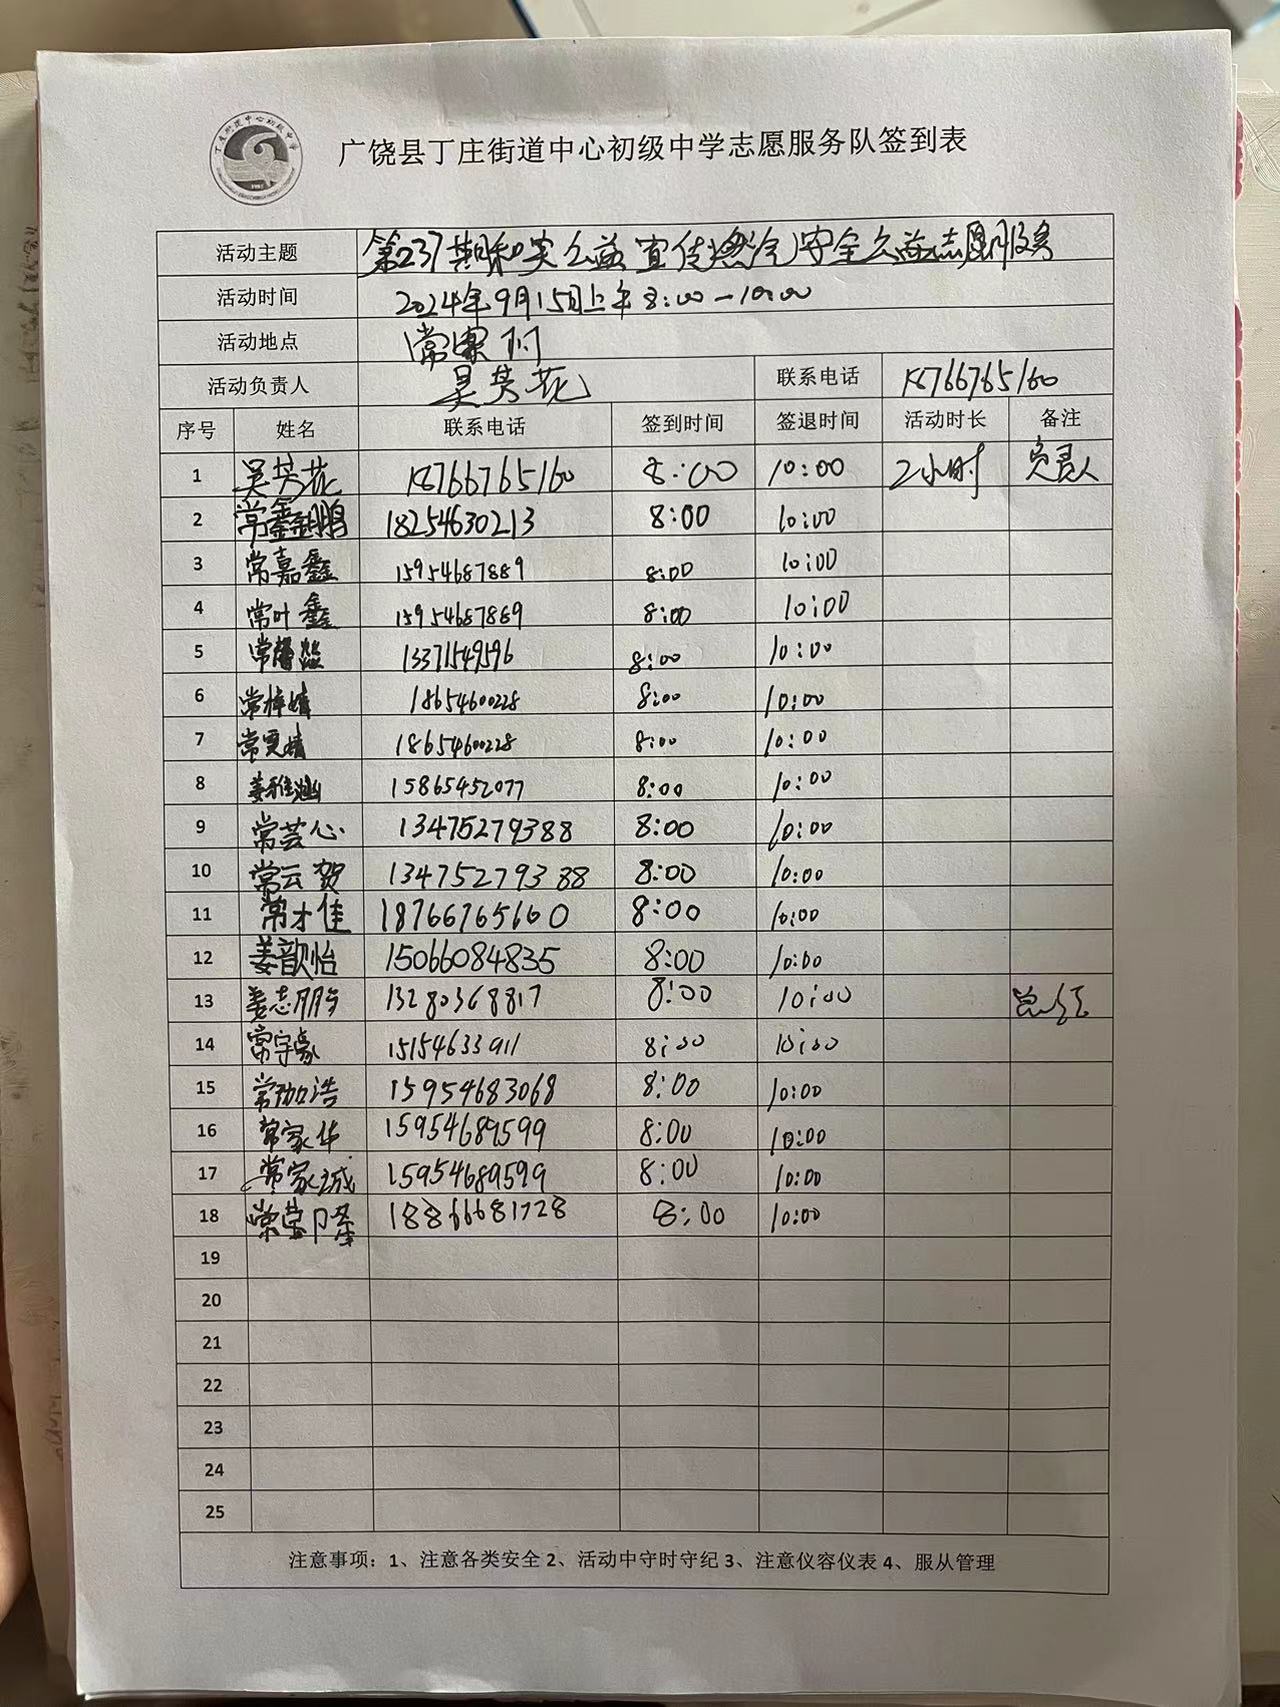 丁庄街道中心初级中学
广饶县丁庄街道中心初级中学志愿服务队签到表
活动主题 第237期和美公益宣传燃气安全公益志愿服务
活动时间 2024年9月15日上午8:00-10:00
活动地点 常家村
活动负责人 吴芳花 联系电话 18766765160
序号 姓名 联系电话 签到时间 签退时间 活动时长 备注
1 吴芳花 18766765160 8:00 10:00 2小时 负责人
2 常鑫鹏 18254630213 8:00 10:00
3 常嘉鑫 15954687889 8:00 10:00
4 常叶鑫 15954687889 8:00 10:00
5 常馨 13371549596 8:00 10:00
6 常梓婧 18654600228 8:00 10:00
7 常雯婧 18654600228 8:00 10:00
8 姜雅涵 15865452077 8:00 10:00
9 常芸心 13475279388 8:00 10:00
10 常云贺 13475279388 8:00 10:00
11 常才佳 18766765160 8:00 10:00
12 姜歆怡 15066084835 8:00 10:00
13 姜志朋 13280368817 8:00 10:00
14 常宇豪 15154633911 8:00 10:00
15 常珈浩 15954683068 8:00 10:00
16 常家华 15954689599 8:00 10:00
17 常家诚 15954689599 8:00 10:00
18 常莹 18866681728 8:00 10:00
19
20
21
22
23
24
25
注意事项：1、注意各类安全 2、活动中守时守纪 3、注意仪容仪表 4、服从管理